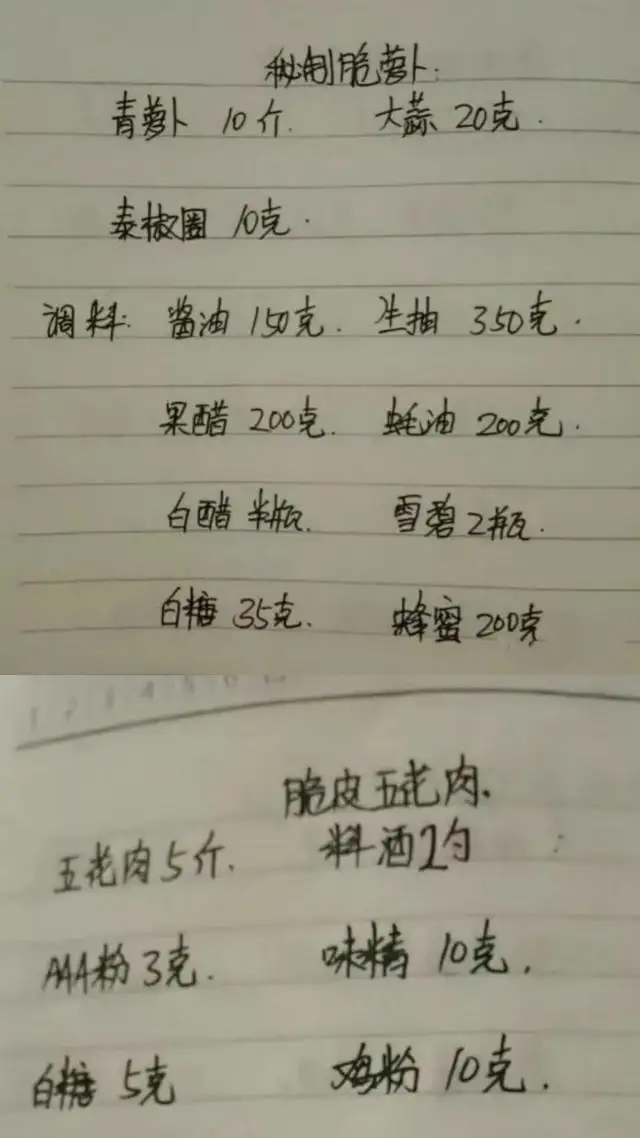 秘制脆萝卜:
青萝卜 10斤. 大蒜 20克.
泰椒圈 10克.
调料: 酱油 150克. 生抽 350克.
果醋 200克. 蚝油 200克.
白醋 半瓶. 雪碧 2瓶.
白糖 35克. 蜂蜜 200克
脆皮五花肉.
五花肉 5斤. 料酒 2勺
AAA粉 3克. 味精 10克.
白糖 5克 鸡粉 10克.